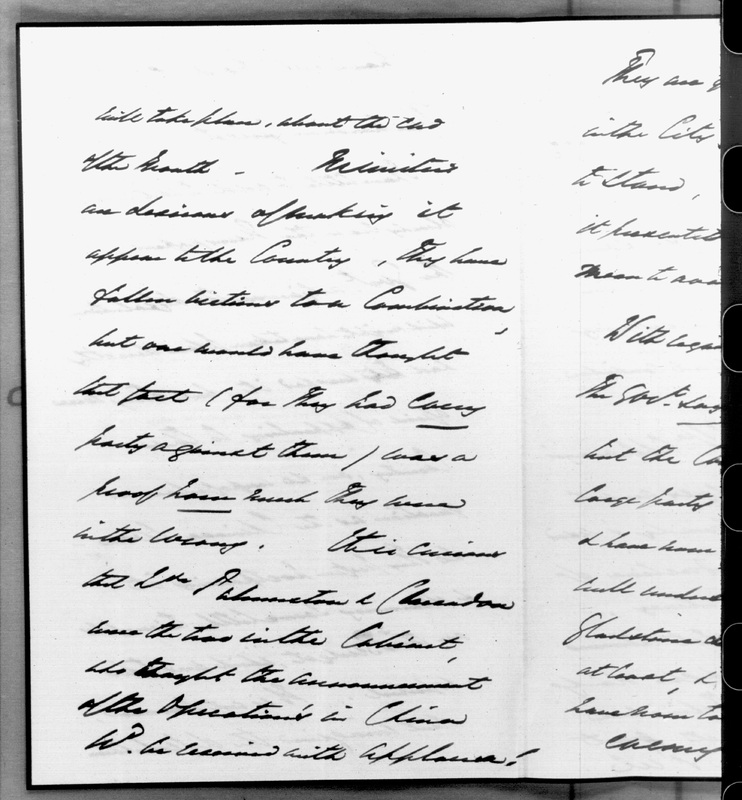 will take place, about the end
of the Month - Ministers
are desirous of making it
appear to the Country, they have
fallen victims to a Combination,
but one would have thought
that fact (for they had every
party against them) was a
proof how much they were
in the Wrong. It is curious
that Lds Palmerston & Clarendon
were the two in the Cabinet,
who thought the announcement
of the Operations in China
Wd. be received with applause!
They are
in the City
to stand,
it presented
mean to
With
The Govt.
but the
large party
& have now
will
Gladstone
at least, &
have now to
enemy